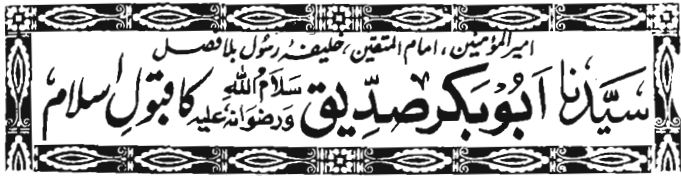 امیر المؤمنین، امام المتقین، خلیفۂ رسول بلا فصل
سیّدنا ابوبکر صدّیق سلام اللہ و رضوانہ علیہ کا قبولِ اسلام